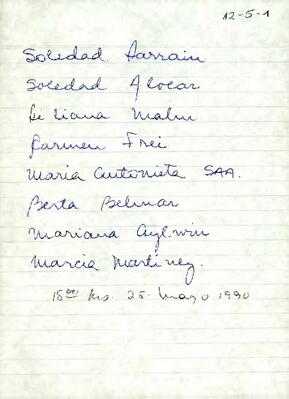 12-5-1
Soledad Larrain
Soledad Alvear
Liliana Mahn
Carmen Frei
Maria Antonieta SAA.
Berta Belmar
Mariana Aylwin
Marcia Martinez.
15⁰⁰ hrs. 25. Marzo 1990